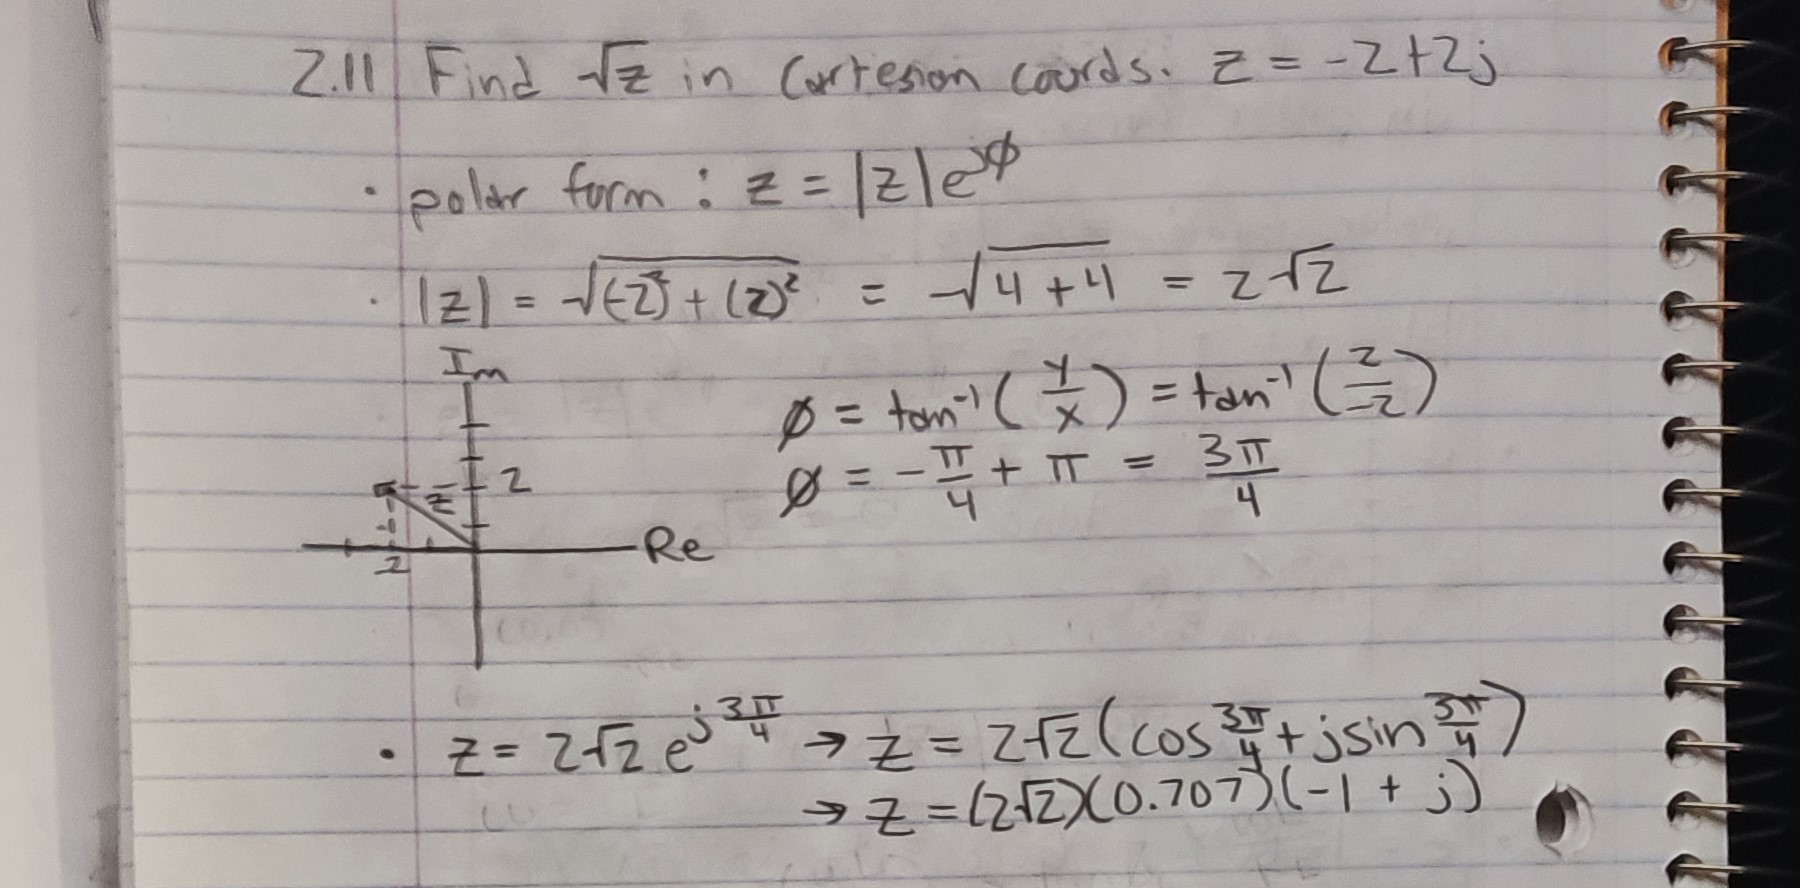 2.11 Find √z in Cartesian coords. z = -2+2j
· polar form : z = |z|e^jφ
· |z| = √(-2)² + (2)² = √4+4 = 2√2
Im
φ = tan⁻¹(y/x) = tan⁻¹(2/-2)
φ = -π/4 + π = 3π/4
z 2
Re
2
· z = 2√2 e^j3π/4 → z = 2√2(cos 3π/4 + jsin 3π/4)
→ z = (2√2)(0.707)(-1 + j)